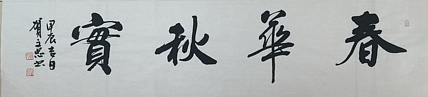 春華秋實
甲辰吉日
賀
書